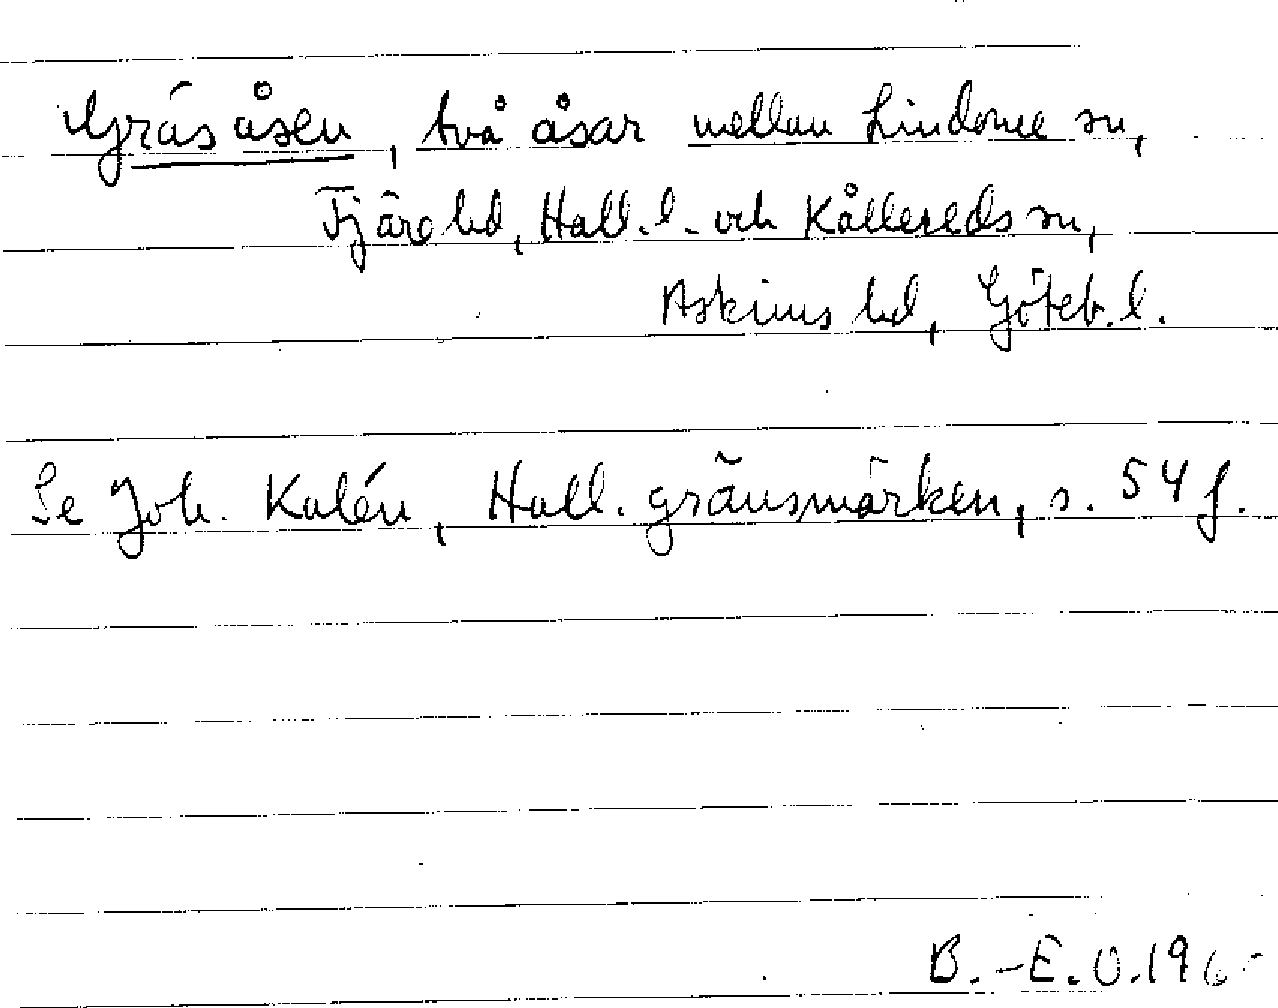 Gräsåsen, två åsar mellan Lindome sn,
Fjäre hd, Hall. l. och Kållereds sn,
Askims hd, Göteb. l.
Se Joh. Kalén, Hall. gränsmärken, s. 54 f.
B.-E.O.